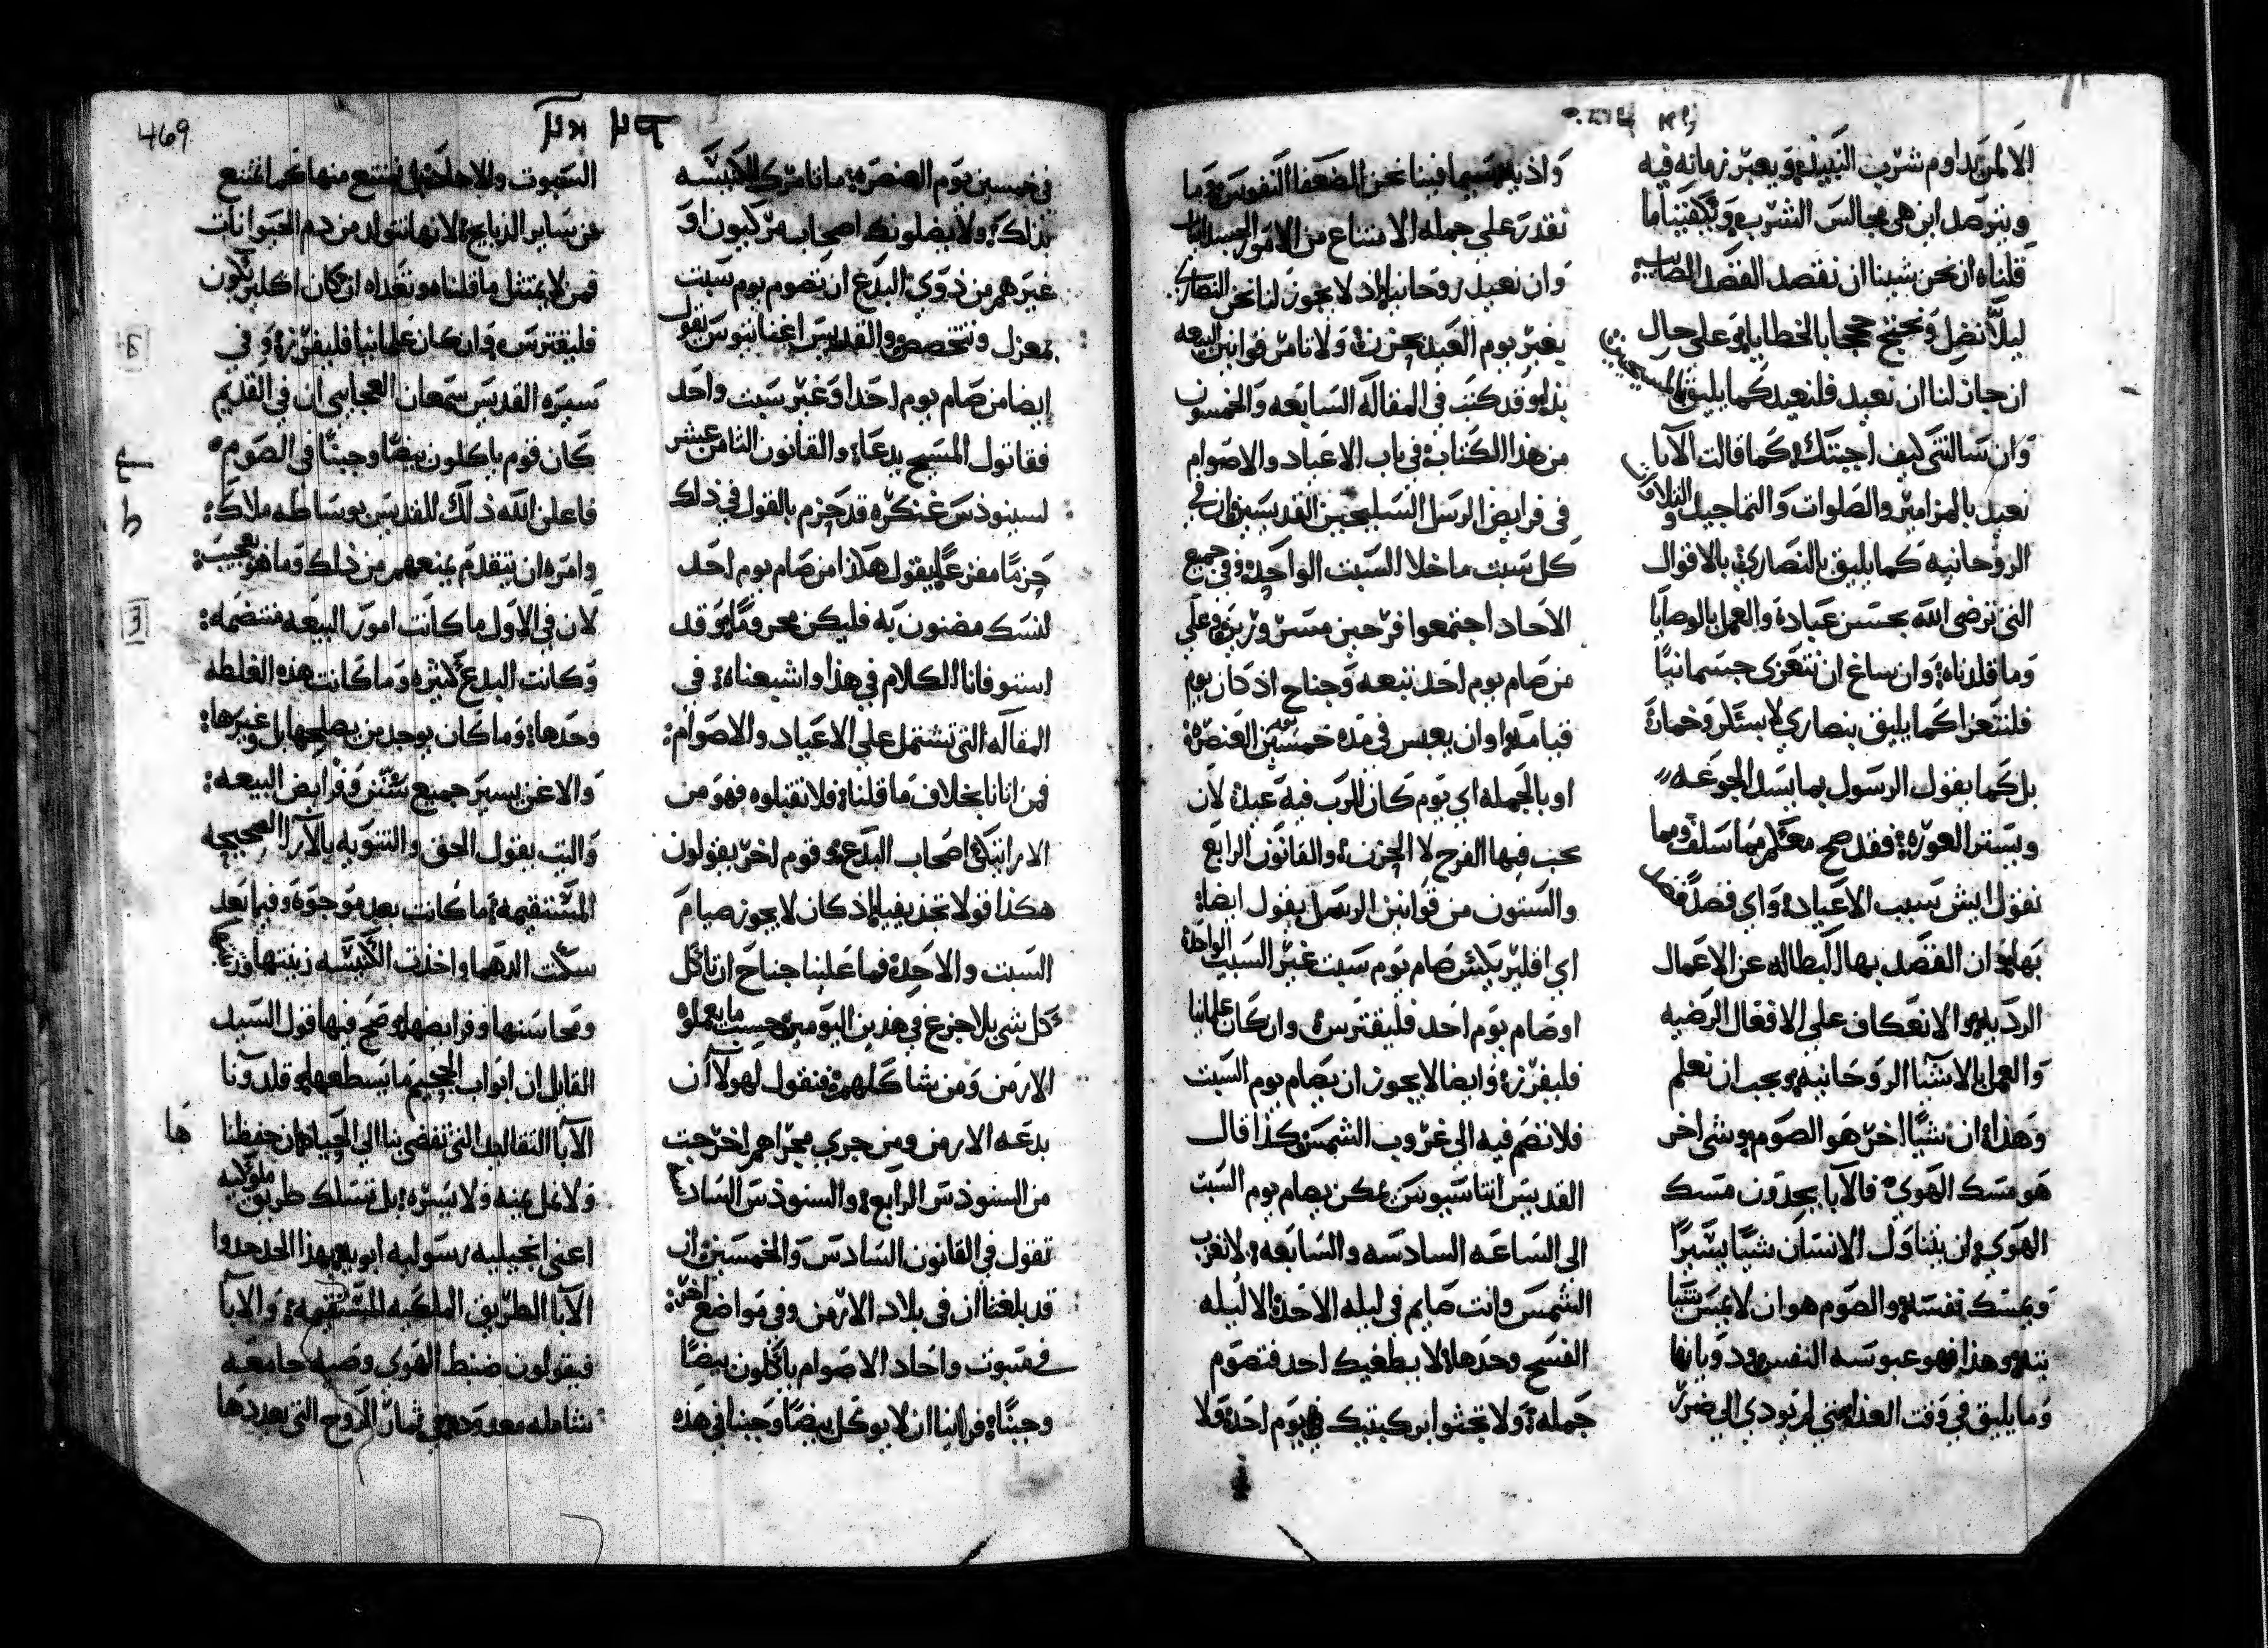 الا لمن يداوم شرب النبيذ ويعبر زمانه فيه
ويترصد اين هي مجالس الشرب ويكفينا ما
قلناه ان نحن شينا ان نفصد الفصد الصايب
ليلا نضل ونحتج حججا بالخطايا وعلي حال
ان جاز لنا ان نعيد فلنعيد كما يليق بالمسيحيين
وان سالتني كيف اجبتك كما قالت الابا
نعيد بالمزامير والصلوات والتماجيد والتلاوات
الروحانيه كما يليق بالنصاري بالاقوال
التي ترضي الله بحسن عباده والعمل بالوصايا
وما قلناه وان ساغ ان نتعزي جسمانيا
فلنتعزا كما يليق بنصاري لا بسكر وخماره
بل كما يقول الرسول بما يسد الجوعه
ويستر العوره فقد صح معكم مما سلف ومما
نقول ايش سبب الاعياد واي فصد فصد
بها ان الفصد بها البطاله عن الاعمال
الرديه والانعكاف علي الافعال الرضيه
والعمل بالاشيا الروحانيه ويجب ان نعلم
وهذا ان شيا اخر هو الصوم وشي اخر
هو مسك الهوي فالابا يحدون مسك
الهوي ان يتناول الانسان شيا يسيرا
ويمسك نفسه والصوم هو ان لا يمس شيا
بته وهذا فهو عبوسه النفس ودوبانها
وما يليق في وقت العذا متي لم يودي الي ضرر
واذيه سيما فينا نحن الضعفا النفوس وما
نقدر علي جمله الامتناع من الامور الجسدانيات
وان نعيد روحانيا اذ لا يجوز لنا نحن النصاري
يعبر يوم العيد بحزن ولا نامر قوانين البيعه
بذا وقد كتب في المقاله السابعه والخمسون
من هذا الكتاب في باب الاعياد والاصوام
في فرايض الرسل السليحين القديسين ان في
كل سبت ما خلا السبت الواحد وفي جميع
الاحاد اجتمعوا فرحين مسرورين وعلي
من صام يوم احد تبعه وجناح اذ كان يوم
قيامه او ان يعبس في مده خمسين يوم العنصره
او بالجمله اي يوم كان للرب فيه عيد لان
يجب فيها الفرح لا الحزن والقانون الرابع
والستون من قوانين الرسل يقول ايضا
اي اقليريكس صام يوم سبت غير السبت الواحد
او صام يوم احد فليقترس وان كان علمانيا
فليفرز وايضا لا يجوز ان يصام يوم السبت
فلا نضم فيه الي غروب الشمس كذا قال
القديس اتناسيوس يمكن يصام يوم السبت
الي الساعه السادسه والسابعه لا تغرب
الشمس وانت صايم في ليله الاحد الا ليله
الفسح وحدها لا يطغيك احد فتصوم
جمله ولا تجثوا بركبتيك في يوم احد ولا
في خمسين يوم العنصره ما نامر الكنيسه
بذلك ولا يضلونك اصحاب مركيون او
غيرهم من ذوي البدع ان تصوم يوم سبت
بمعزل وتتخصص والقديس اغناتيوس يقول
ايضا من صام يوم احد او غير سبت واحد
فقاتول المسيح يدعا والقانون الثامن عشر
لسينوذس غنكره قد جزم بالقول في ذلك
جزما مفزعا يقول هكذا من صام يوم احد
لنسك مضنون به فليكن محروما وقد
استوفانا الكلام في هذا واشبعناه في
المقاله التي تشتمل علي الاعياد والاصوام
فمن اتانا بخلاف ما قلناه فلا تقبلوه فهو من
الاراتيكي اصحاب البدع وقوم اخر يقولون
هكذا قولا تجذيفيا اذ كان لا يجوز صيام
السبت والاحد فما علينا جناح ان ناكل
كل شي بلا جزع في هذين اليومين حسب ما يعملوه
الارمن ومن شاكلهم فنقول لهولا ان
بدعه الارمن ومن جري مجراهم اخرجت
من السنوذس الرابع والسنوذس السادس
تقول في القانون السادس والخمسين ان
قد بلغنا ان في بلاد الارمن وفي مواضع اخر
في سبوت واحاد الاصوام ياكلون بيضا
وجبنا فراينا ان لا يوكل بيضا وجبنا في هذه
469
السبوت والاحاد بل نمتنع منها كما نمتنع
من ساير الذبايح لانها تتولد من دم الحيوانات
فمن لا يمتثل ما قلناه وتعداه ان كان اكليريكون
فليقترس وان كان علمانيا فليفرز وفي
سيره القديس سمعان العجايبي ان في القديم
كان قوم ياكلون بيضا وجبنا في الصوم
فاعلن الله ذلك للقديس بوساطه ملاك
وامره ان يتقدم يمنعهم من ذلك وما هو بعجيب
لان في الاول ما كانت امور البيعه منتضمه
وكانت البدع كثيره وما كانت هذه الغلطه
وحدها وما كان يوجد من يصلحها بل وغيرها
والاعن يسير جميع سنن وفرايض البيعه
والتب بقول الحق والتنويه بالارا الصحيحه
المستقيمه ما كانت بعد موجوده وفيما بعد
سكت الدهما واخذت الكنيسه زينتها
ومحاسنها وفرايضها وصح فيها قول السيد
القايل ان ابواب الجحيم ما يسطعها وقلدونا
الابا التقاليد التي تفضي بنا الي الحياه ان حفظنا ها
ولا نمل يمنه ولا يسره بل نسلك طريق ملوكيه
اعني انجيليه رسوليه ابويه بهذا الحد حدوا
الابا الطريق الملكيه المستقيمه والابا
فيقولون ضبط الهوي وصيه جامعه
شامله معدوده في ثمار الروح التي يعددها